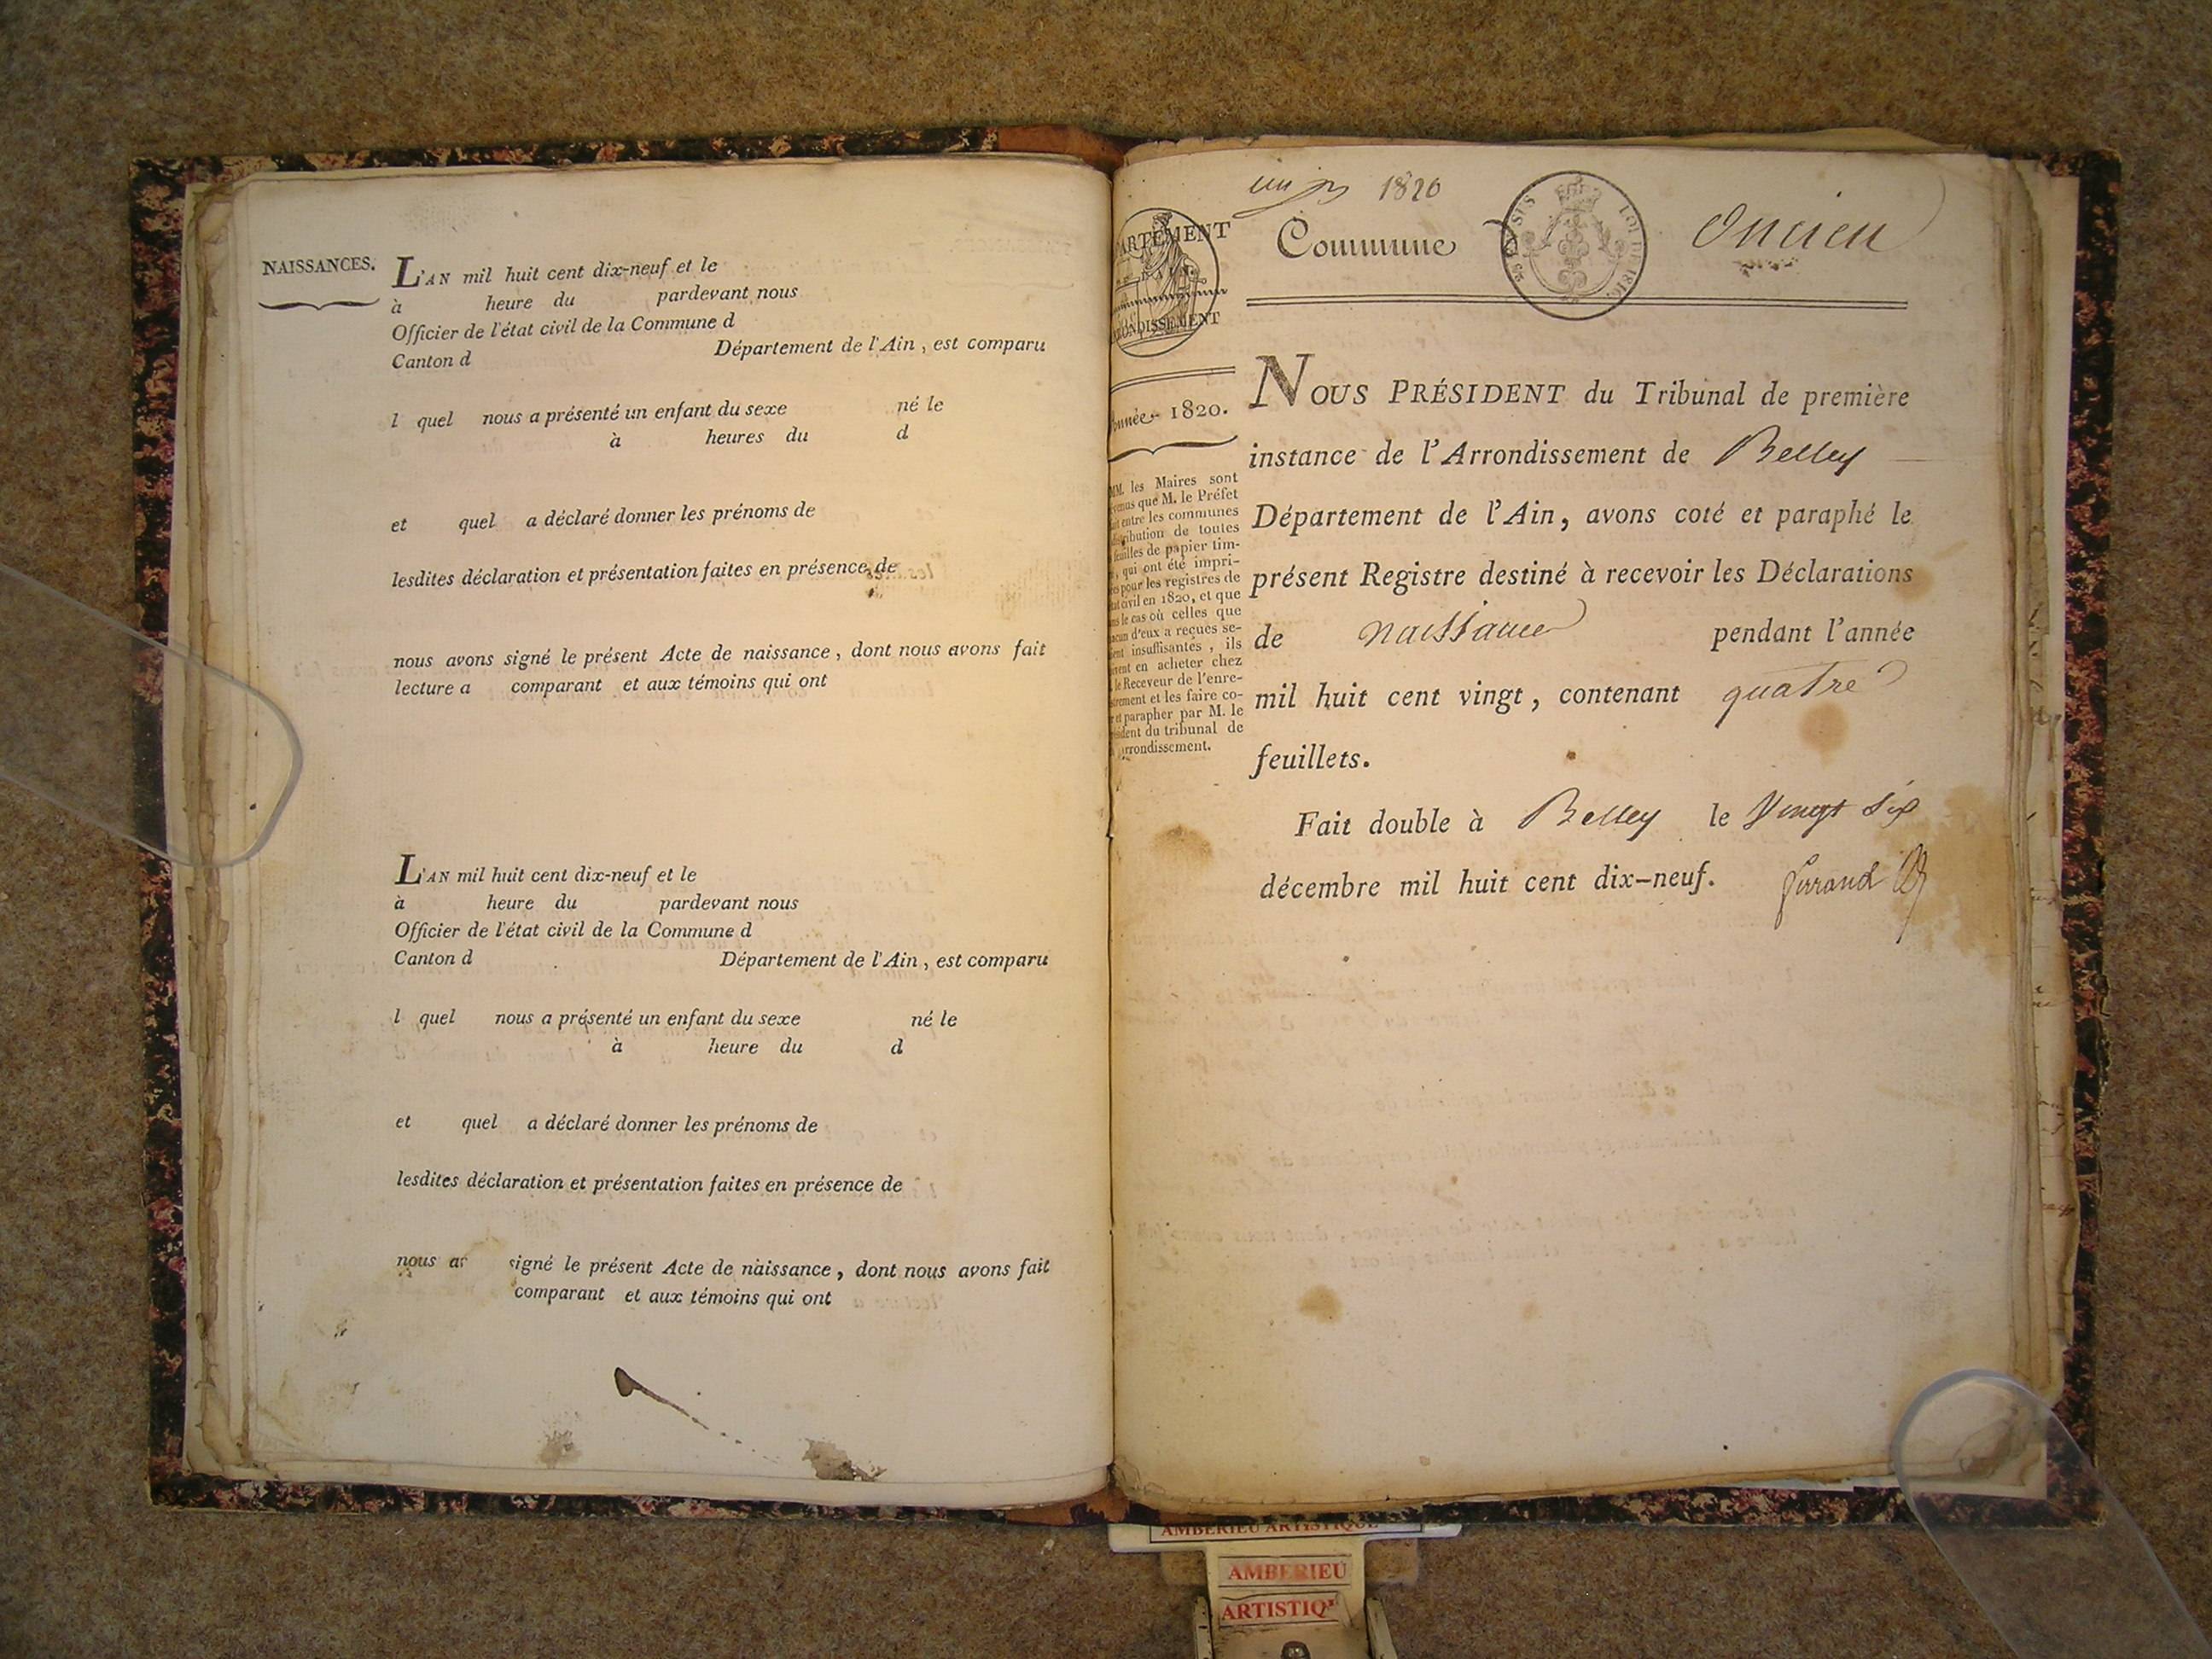 NAISSANCES.
L'AN mil huit cent dix-neuf et le
à heure du pardevant nous
Officier de l'état civil de la Commune d
Canton d Département de l'Ain, est comparu
l quel nous a présenté un enfant du sexe né le
à heures du d
et quel a déclaré donner les prénoms de
lesdites déclaration et présentation faites en présence de
nous avons signé le présent Acte de naissance, dont nous avons fait
lecture a comparant et aux témoins qui ont
L'AN mil huit cent dix-neuf et le
à heure du pardevant nous
Officier de l'état civil de la Commune d
Canton d Département de l'Ain, est comparu
l quel nous a présenté un enfant du sexe né le
à heure du d
et quel a déclaré donner les prénoms de
lesdites déclaration et présentation faites en présence de
nous signé le présent Acte de naissance, dont nous avons fait
comparant et aux témoins qui ont
1820
ARTEMENT
Commune Oncieu
RONDISSEMENT
LOI DE 1816.
Année 1820.
MM. les Maires sont
venus que M. le Préfet
entre les communes
distribution de toutes
feuilles de papier tim-
, qui ont été impri-
pour les registres de
civil en 1820, et que
le cas où celles que
d'eux a reçues se-
insuffisantes, ils
en acheter chez
le Receveur de l'enre-
et les faire co-
et parapher par M. le
du tribunal de
arrondissement.
NOUS PRÉSIDENT du Tribunal de première
instance de l'Arrondissement de Belley
Département de l'Ain, avons coté et paraphé le
présent Registre destiné à recevoir les Déclarations
de naissance pendant l'année
mil huit cent vingt, contenant quatre
feuillets.
Fait double à Belley le Vingt six
décembre mil huit cent dix-neuf.
AMBERIEU ARTISTIQUE
AMBERIEU
ARTISTIQ